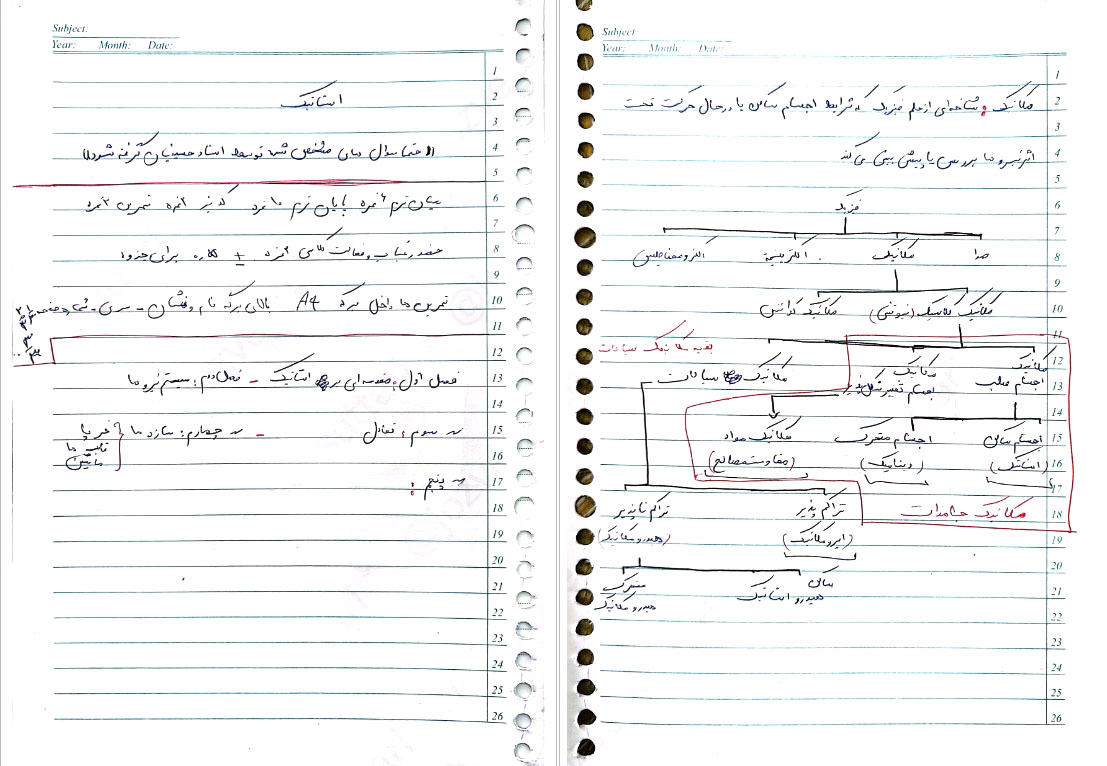 Subject:
Year: Month: Date:
استاتیک
((حتما سوال های مشخص شده توسط استاد حسینیان گرفته شود))
میان ترم ۶ نمره پایان ترم ۱۰ نمره کوئیز ۲ نمره تمرین ۲ نمره
حضور غیاب و فعالیت کلاسی ۲ نمره ± نمره برای جزوه
تمرین ها داخل برگه A4 بالای برگه نام و نشان - سری - ش صفحه
فصل اول: مقدمه ای بر استاتیک - فصل دوم: سیستم نیروها
~ سوم: تعادل - ~ چهارم: سازه ها { خرپا
قاب ها
ماشین
~ پنجم:
1
2
3
4
5
6
7
8
9
10
11
12
13
14
15
16
17
18
19
20
21
22
23
24
25
26
Subject:
Year: Month: Date:
مکانیک: شاخه‌ای از علم فیزیک که شرایط اجسام ساکن یا در حال حرکت تحت
اثر نیروها بررسی یا پیش بینی می کند
فیزیک
صدا مکانیک الکتریسیته الکترومغناطیس
مکانیک کلاسیک (نیوتنی) مکانیک کوانتمی
بقیه مکانیک سیالات
مکانیک اجسام صلب
مکانیک اجسام تغییر شکل پذیر
مکانیک سیالات
اجسام ساکن (استاتیک)
اجسام متحرک (دینامیک)
مکانیک مواد (مقاومت مصالح)
مکانیک جامدات
تراکم پذیر (ایرومکانیک)
تراکم ناپذیر (هیدرومکانیک)
ساکن هیدرو استاتیک
متحرک هیدرو مکانیک
1
2
3
4
5
6
7
8
9
10
11
12
13
14
15
16
17
18
19
20
21
22
23
24
25
26